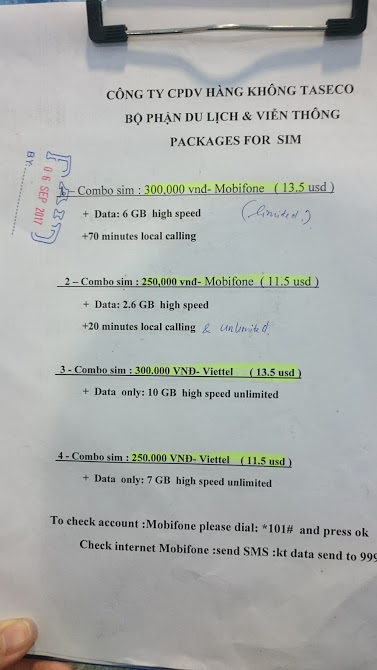 CÔNG TY CPDV HÀNG KHÔNG TASECO
BỘ PHẬN DU LỊCH & VIỄN THÔNG
PACKAGES FOR SIM
PAID
06 SEP 2017
BY:
– Combo sim : 300,000 vnd- Mobifone ( 13.5 usd )
+ Data: 6 GB high speed (limited.)
+70 minutes local calling
2 – Combo sim : 250,000 vnđ- Mobifone ( 11.5 usd )
+ Data: 2.6 GB high speed
+20 minutes local calling & unlimited.
3 - Combo sim : 300.000 VNĐ- Viettel ( 13.5 usd )
+ Data only: 10 GB high speed unlimited
4 - Combo sim : 250.000 VNĐ- Viettel ( 11.5 usd )
+ Data only: 7 GB high speed unlimited
To check account :Mobifone please dial: *101# and press ok
Check internet Mobifone :send SMS :kt data send to 999